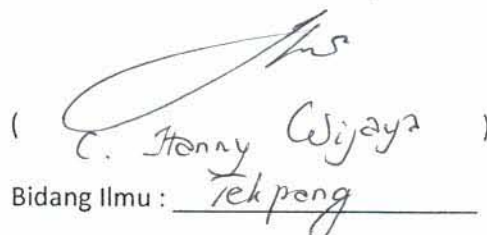 ( C. Hanny Wijaya )
Bidang Ilmu : Tekpang